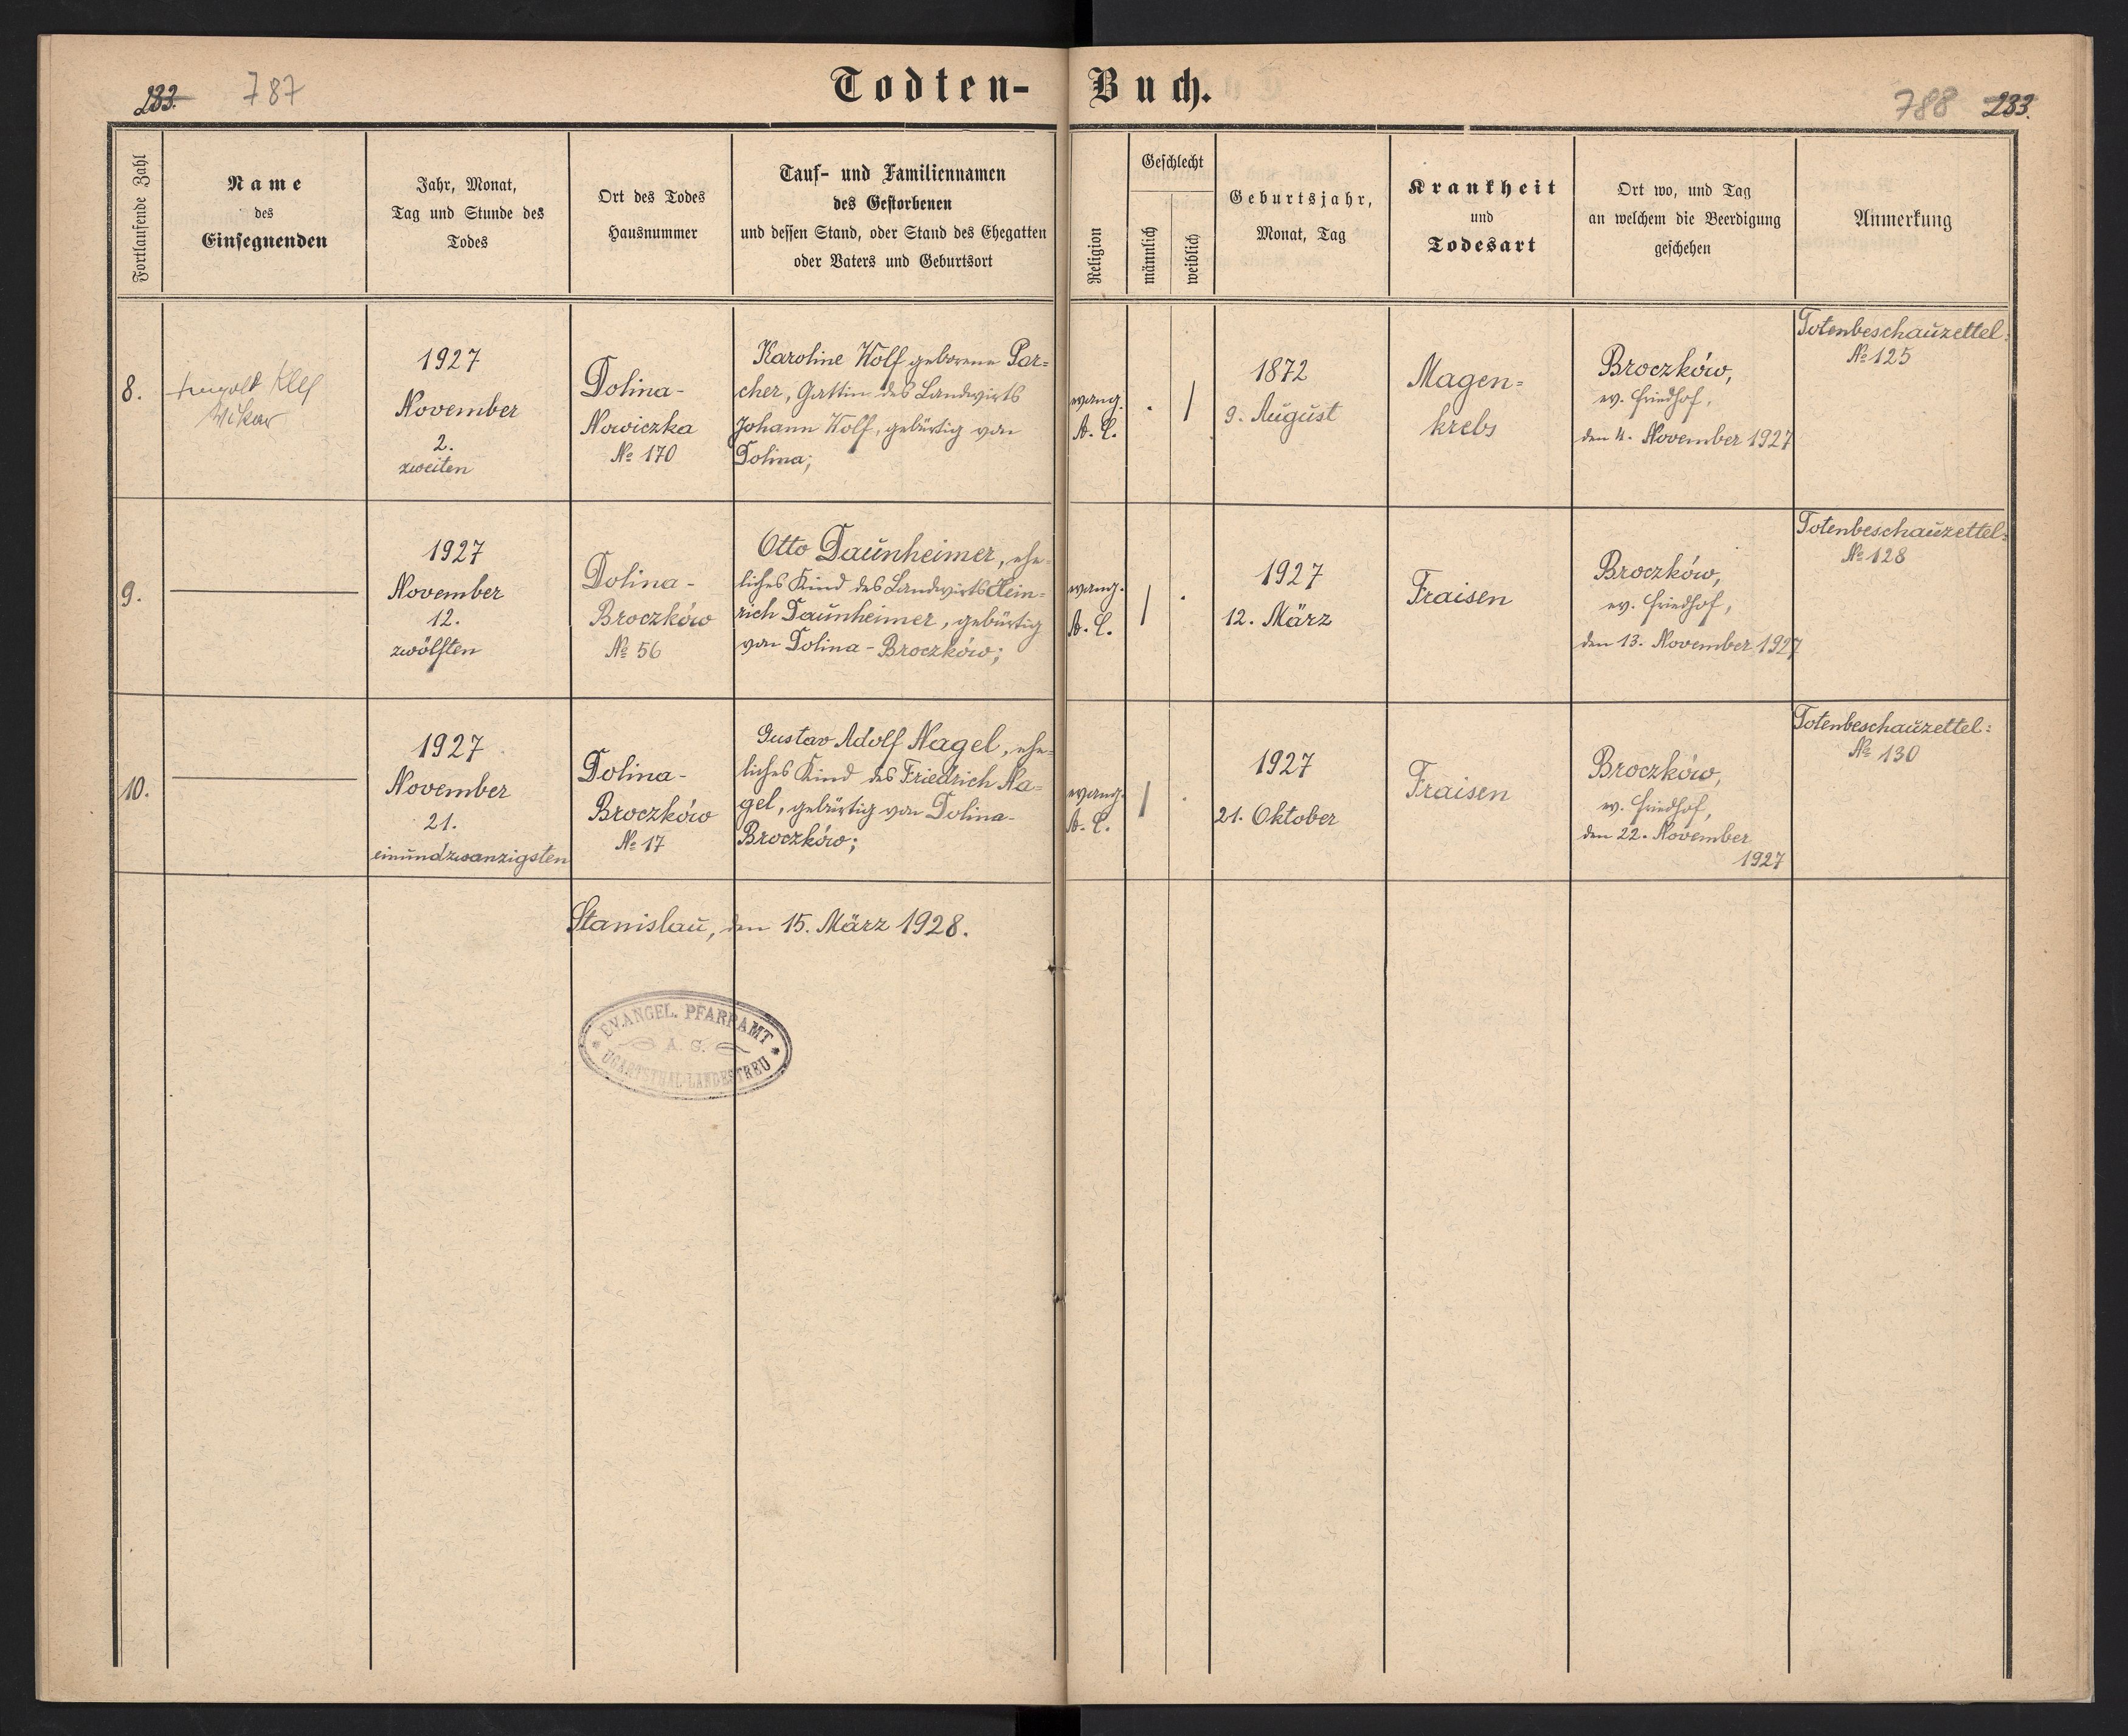 283. 787
Todten-Buch.
788 283.
Fortlaufende Zahl
Name
des
Einsegnenden
Jahr, Monat,
Tag und Stunde des
Todes
Ort des Todes
Hausnummer
Tauf- und Familiennamen
des Gestorbenen
und dessen Stand, oder Stand des Ehegatten
oder Vaters und Geburtsort
Religion
Geschlecht
männlich
weiblich
Geburtsjahr,
Monat, Tag
Krankheit
und
Todesart
Ort wo, und Tag
an welchem die Beerdigung
geschehen
Anmerkung
8.
Vikar
1927
November
2.
zweiten
Dolina-
Nowiczka
№ 170
Karoline Wolf geborene Por=
cher, Gattin des Landwirts
Johann Wolf, gebürtig von
Dolina;
evang.
A. C.
1872
9. August
Magen=
krebs
Broczków,
ev. Friedhof,
den 4. November 1927
Totenbeschauzettel:
№ 125
9.
1927
November
12.
zwölften
Dolina-
Broczków
№ 56
Otto Daunheimer, ehe=
liches Kind des Landwirts Hein=
rich Daunheimer, gebürtig
von Dolina-Broczków;
evang.
A. C.
1927
12. März
Fraisen
Broczków,
ev. Friedhof,
den 13. November 1927
Totenbeschauzettel:
№ 128
10.
1927
November
21.
einundzwanzigsten
Dolina-
Broczków
№ 17
Gustav Adolf Nagel, ehe=
liches Kind des Friedrich Na=
gel, gebürtig von Dolina-
Broczków;
evang.
A. C.
1927
21. Oktober
Fraisen
Broczków,
ev. Friedhof,
den 22. November
1927
Totenbeschauzettel:
№ 130
Stanislau, den 15. März 1928.
EVANGEL. PFARRAMT
A. G.
UGARTSTHAL-LANDESTREU